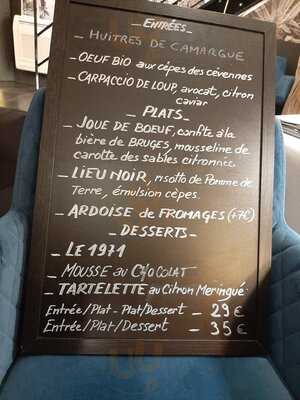 _ENTRÉES_
_ HUITRES DE CAMARGUE
_ OEUF BIO aux cèpes des cévennes
_ CARPACCIO DE LOUP, avocat, citron
caviar
_PLATS_
_ JOUE DE BOEUF, confite à la
bière de BRUGES, mousseline de
carotte des sables citronnée.
_ LIEU NOIR, risotto de Pomme de
Terre, émulsion cèpes.
_ ARDOISE de FROMAGES (+7€)
_DESSERTS_
_ LE 1971
_ MOUSSE au CHOCOLAT
_ TARTELETTE au Citron Meringué
Entrée/Plat - Plat/Dessert _ 29€
Entrée/Plat/Dessert _ 35€